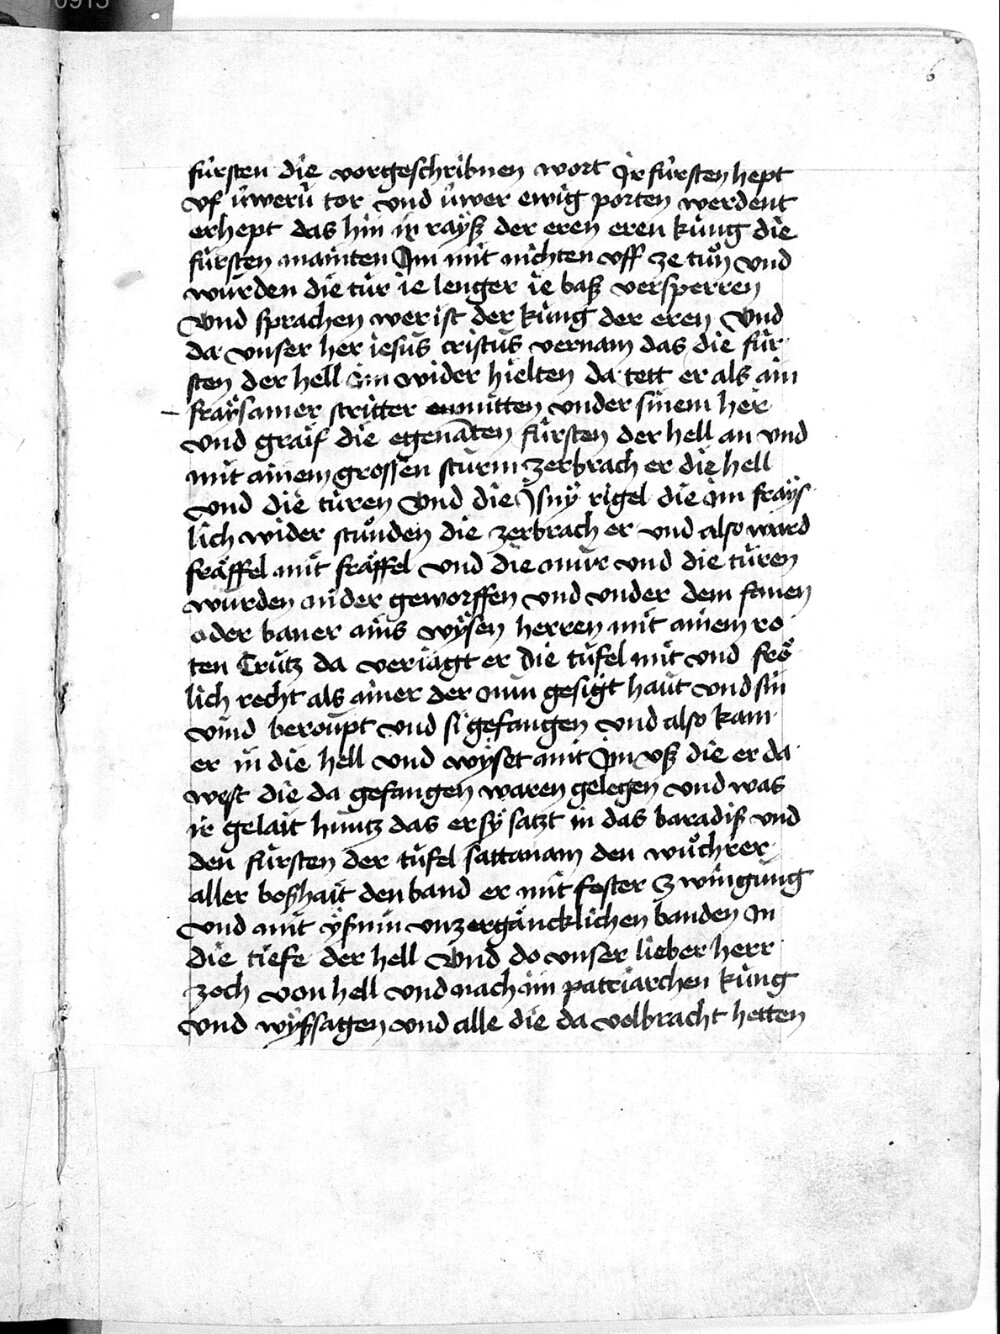 6
fúrsten die vorgeschribnen wort Ir fúrsten hept
vf úwerú tor vnd úwer ewig porten werdent
erhept das hin in rayß der eren eren kúng die
fúrsten mainten Im mit nichten vff ze tuͦn vnd
wurden die túr ie lenger ie baß versperren
Vnd sprachen wer ist der kúng der eren Vnd
da vnser her iesus cristus vernam das die fúr
sten der hell im wider hielten da tett er als ain
fraÿsamer stritter enmitten vnder sinem her
vnd graif die egenāten fúrsten der hell an vnd
mit ainem grossen sturm zerbrach er die hell
vnd die túren Vnd die Jsnÿ rigel die im fraÿs
lich wider stuͦnden die zerbrach er vnd also ward
fräffel mit fräffel vnd die mur vnd die túren
wurden nider geworffen vnd vnder dem fanen
oder baner ains wÿsen herren mit ainem ro
ten Crútz da veriagt er die túfel mit vnd frö
lich recht als ainer der nun gesigt haut vnd sin
vind beroupt vnd si gefangen vnd also kam
er in die hell vnd wÿset mit Im vß die er da
west die da gefangen waren gelegen vnd was
ir gelait huntz das er sÿ satzt in das baradiß vnd
den fúrsten der túfel sattanam den wuͦchrer
aller boßhait den band er mit fester zwingung
vnd mit ÿsnin vnzergäncklichen banden In
die tiefe der hell Vnd do vnser lieber herr
zoch von hell vnd nach im patriarchen kúng
vnd wÿssagen vnd alle die da volbracht hetten